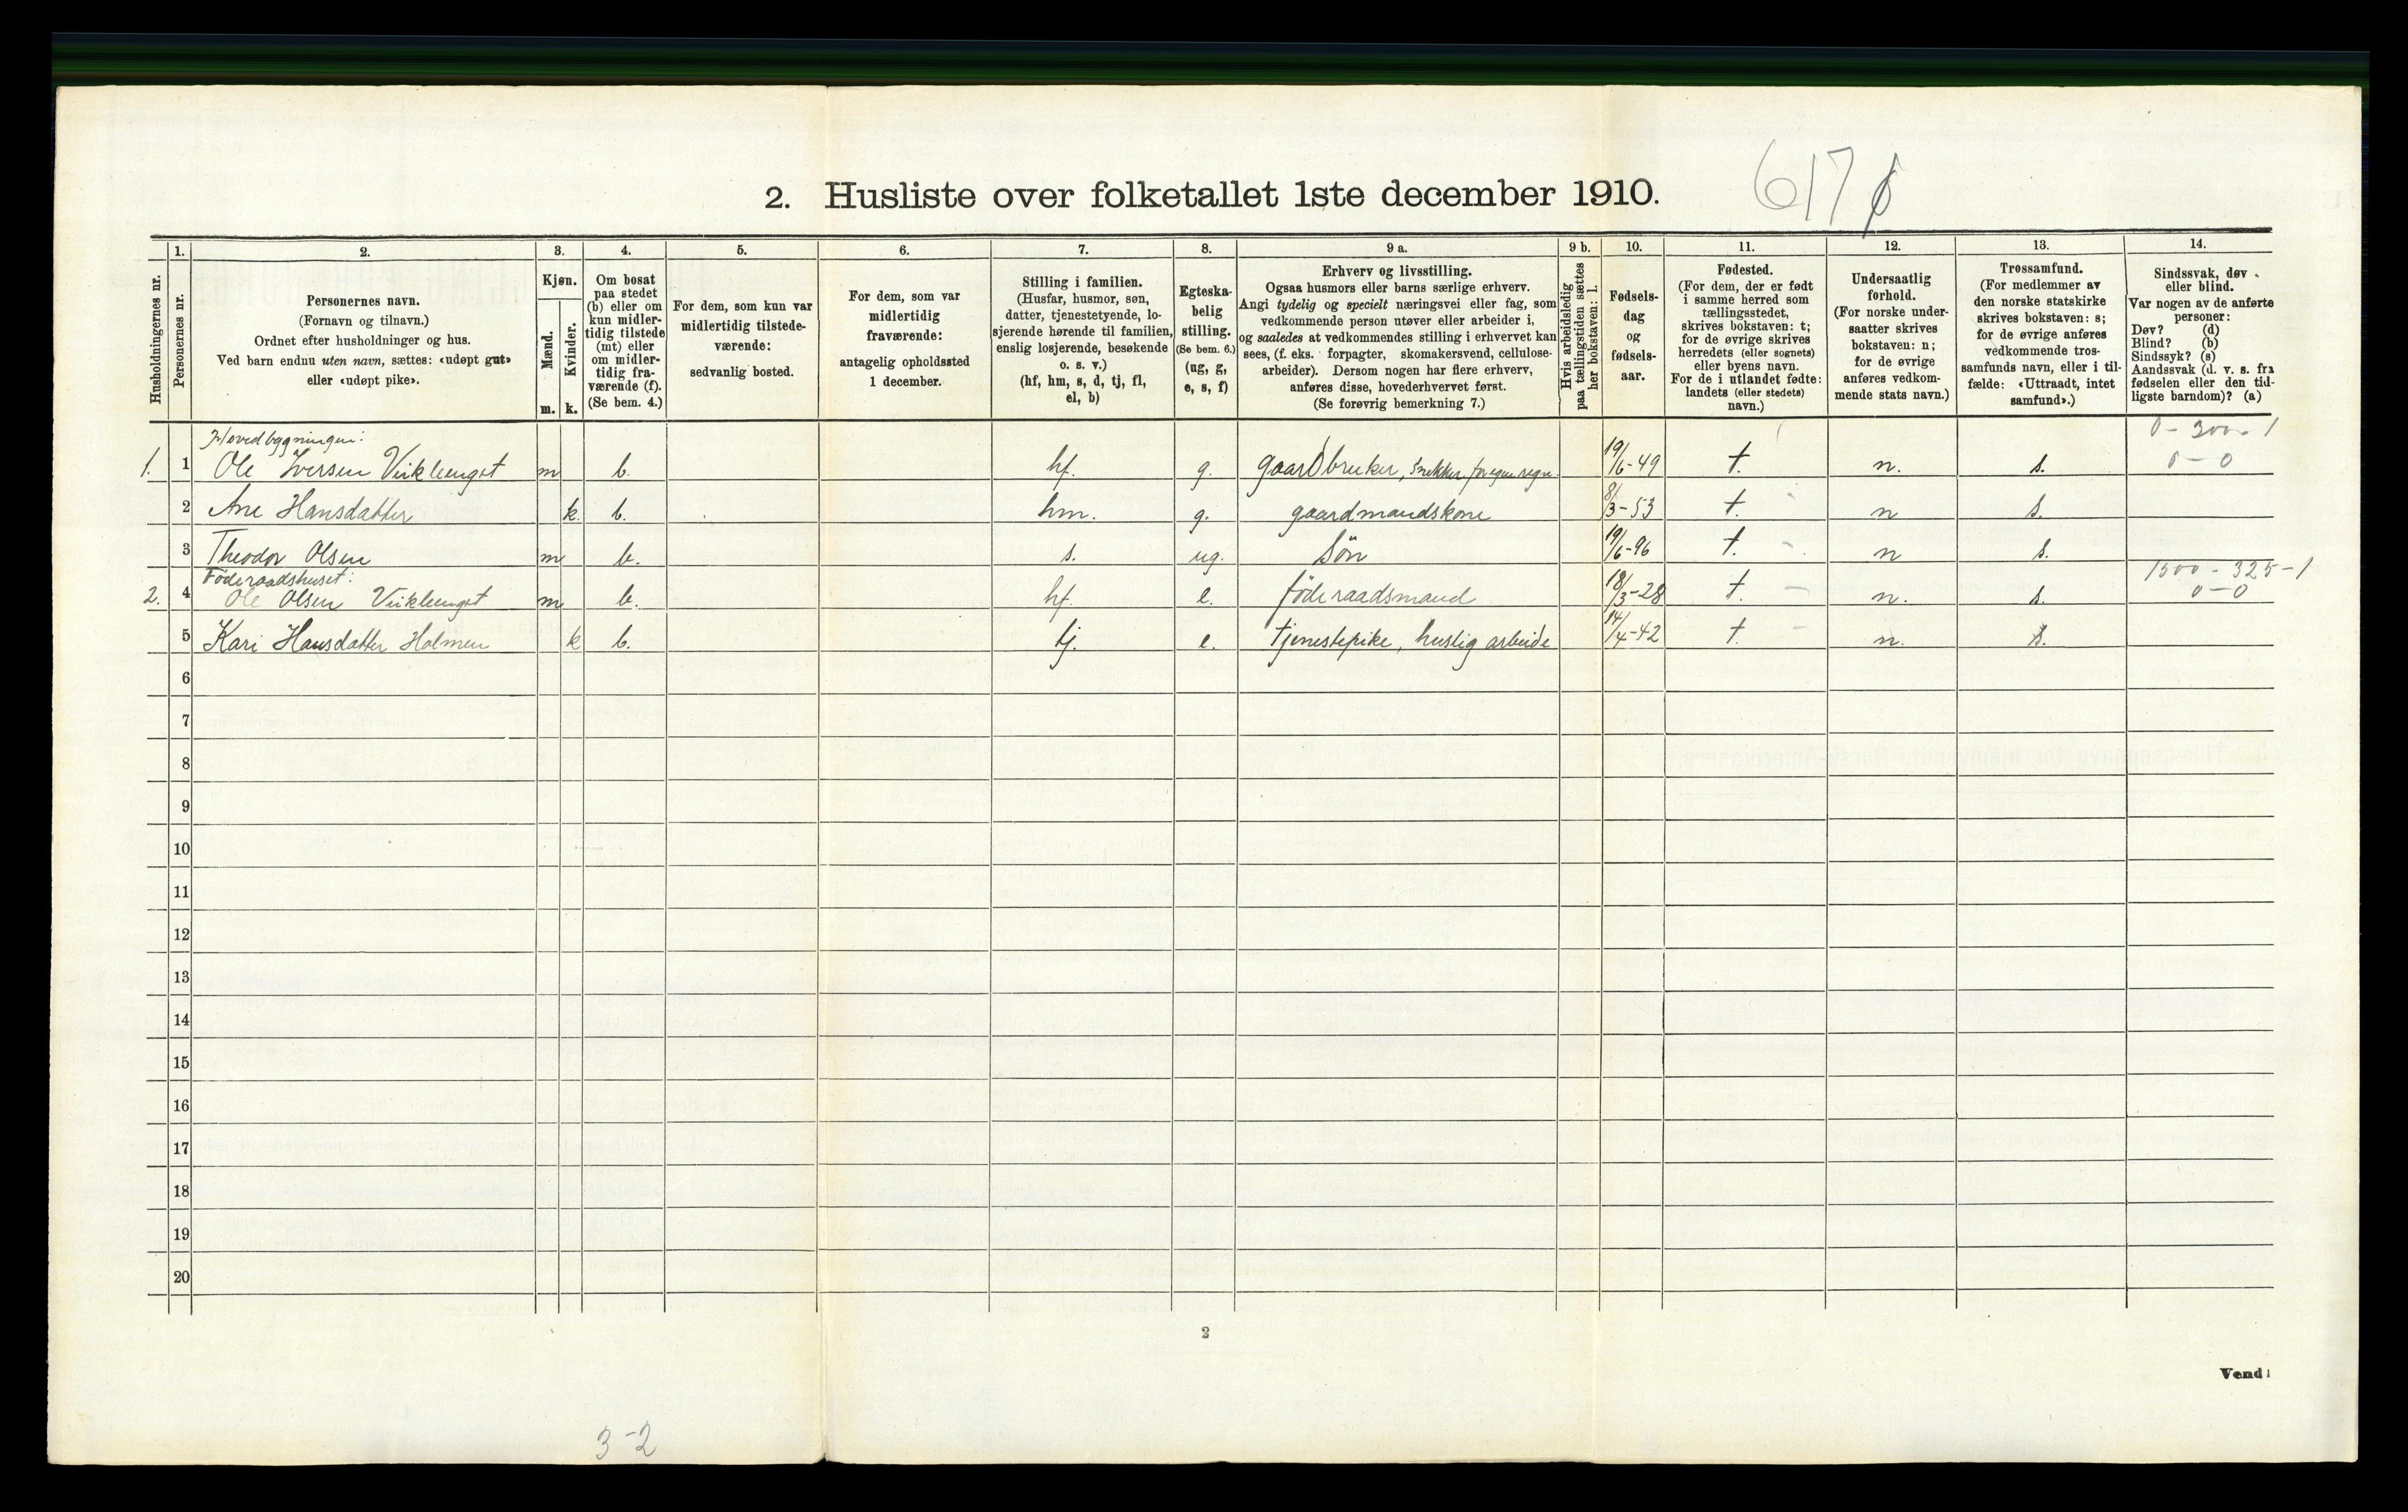 2. Husliste over folketallet 1ste december 1910.
617
Husholdningernes nr.
1.
Personernes nr.
2.
Personernes navn.
(Fornavn og tilnavn.)
Ordnet efter husholdninger og hus.
Ved barn endnu uten navn, sættes: «udøpt gut»
eller «udøpt pike».
3.
Kjøn.
Mænd.
m.
Kvinder.
k.
4.
Om bosat
paa stedet
(b) eller om
kun midler-
tidig tilstede
(mt) eller
om midler-
tidig fra-
værende (f).
(Se bem. 4.)
5.
For dem, som kun var
midlertidig tilstede-
værende:
sedvanlig bosted.
6.
For dem, som var
midlertidig
fraværende:
antagelig opholdssted
1 december.
7.
Stilling i familien.
(Husfar, husmor, søn,
datter, tjenestetyende, lo-
sjerende hørende til familien,
enslig losjerende, besøkende
o. s. v.)
(hf, hm, s, d, tj, fl,
el, b)
8.
Egteska-
belig
stilling.
(Se bem. 6.)
(ug, g,
e, s, f)
9 a.
Erhverv og livsstilling.
Ogsaa husmors eller barns særlige erhverv.
Angi tydelig og specielt næringsvei eller fag, som
vedkommende person utøver eller arbeider i,
og saaledes at vedkommendes stilling i erhvervet kan
sees, (f. eks. forpagter, skomakersvend, cellulose-
arbeider). Dersom nogen har flere erhverv,
anføres disse, hovederhvervet først.
(Se forøvrig bemerkning 7.)
9 b.
Hvis arbeidsledig
paa tællingstiden sættes
her bokstaven: l.
10.
Fødsels-
dag
og
fødsels-
aar.
11.
Fødested.
(For dem, der er født
i samme herred som
tællingsstedet,
skrives bokstaven: t;
for de øvrige skrives
herredets (eller sognets)
eller byens navn.
For de i utlandet fødte:
landets (eller stedets)
navn.)
12.
Undersaatlig
forhold.
(For norske under-
saatter skrives
bokstaven: n;
for de øvrige
anføres vedkom-
mende stats navn.)
13.
Trossamfund.
(For medlemmer av
den norske statskirke
skrives bokstaven: s;
for de øvrige anføres
vedkommende tros-
samfunds navn, eller i til-
fælde: «Uttraadt, intet
samfund».)
14.
Sindssvak, døv
eller blind.
Var nogen av de anførte
personer:
Døv? (d)
Blind? (b)
Sindssyk? (s)
Aandssvak (d. v. s. fra
fødselen eller den tid-
ligste barndom)? (a)
Hovedbygningen: 0 - 300 - 1
1. 1 Ole Iversen m b. hf. g. gaardbruker, snekker for egen regn. 19/6-49 t. n. s. 0 - 0
2 Ane Hansdatter k. b. hm. g. gaardmandskone 8/3-53 t. n s.
3 Theodor Olsen m b. s. ug. Søn 19/6-96 t. n s.
Føderaadshuset: 1500 - 325 - 1
2. 4 Ole Olsen m b. hf. e. føderaadsmand 18/3-28 t. n. s. 0 - 0
5 Kari Hansdatter Holmen k b. tj. e. tjenestepike, huslig arbeide 14/4-42 t. n. s.
6
7
8
9
10
11
12
13
14
15
16
17
18
19
20
2
Vend!
3-2